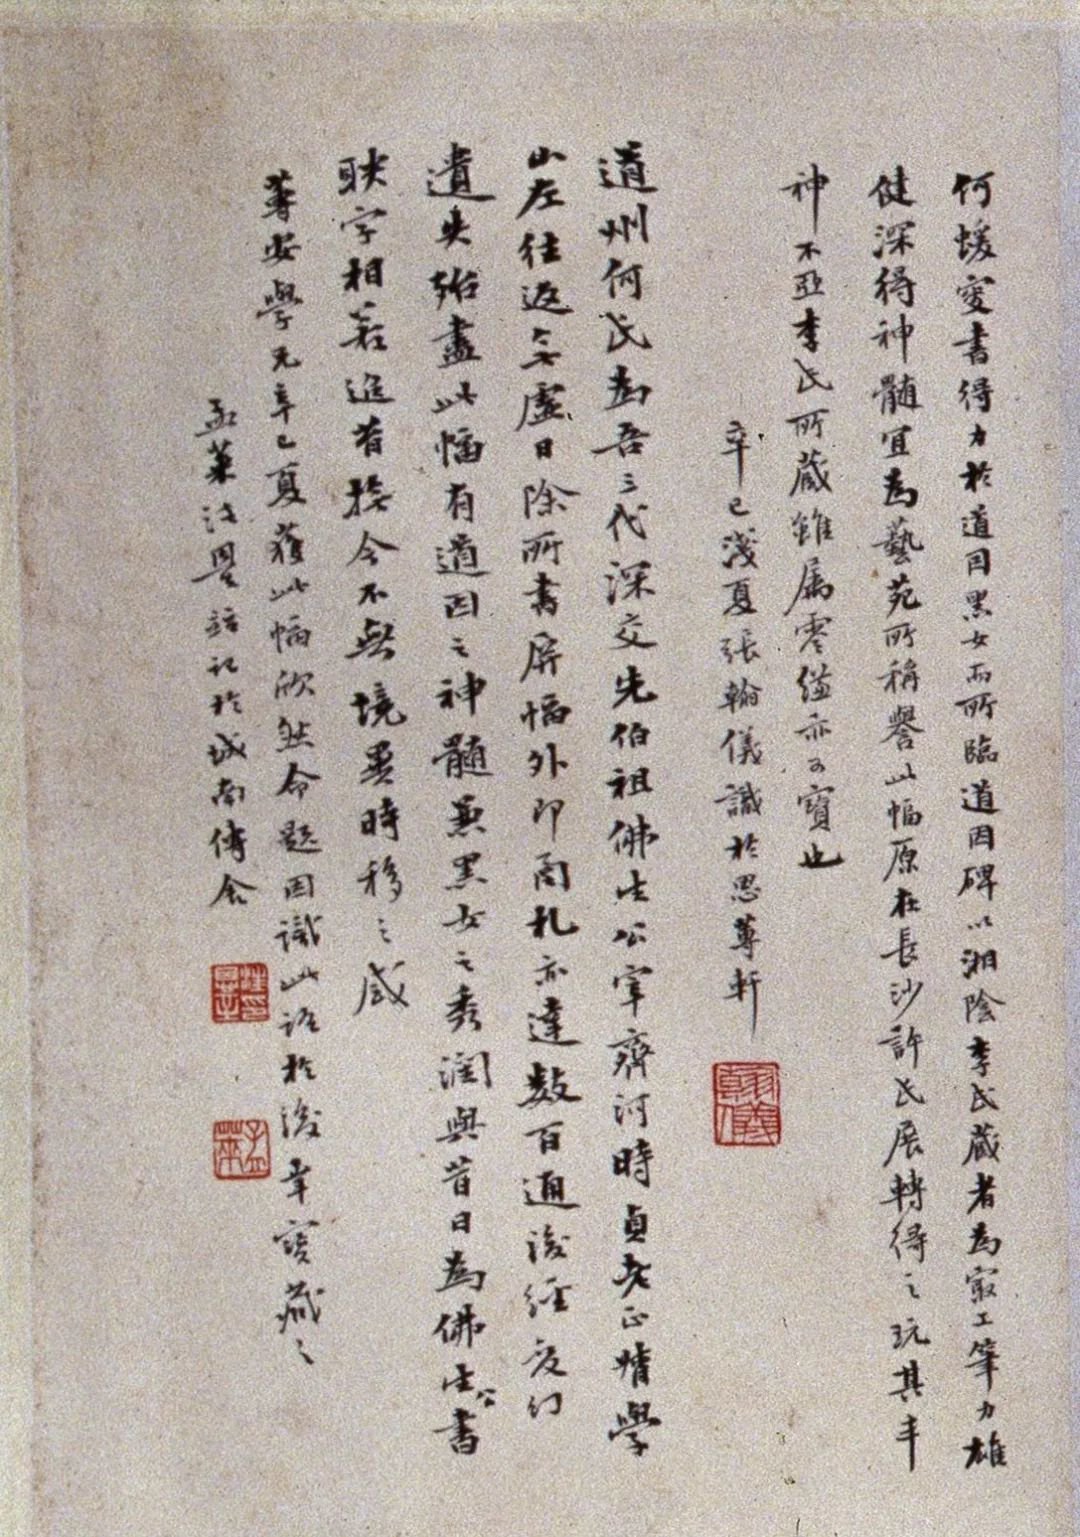 何媛叟書得力於道因黑女而所臨道因碑以湘陰李氏藏者為最工筆力雄
健深得神髓宜為藝苑所稱譽此幅原在長沙許氏展轉得之玩其丰
神不亞李氏所藏雖属零縑亦可寶也
辛巳淺夏張翰儀識於思蓴軒
翰儀
道州何氏為吾三代深交先伯祖佛生公宰齊河時貞老正情學
山左往返無虛日除所書屏幅外即函札亦達數百通後經友们
遺失殆盡此幅有道因之神髓兼黑女之秀潤與昔日為佛生公書
聯字相若進省撫今不無境異時移之感
蓴安學兄辛巳夏獲此幅欣然命題因識此語於後幸寶藏之
孟萊汪詒記於城南傳舍
孟萊